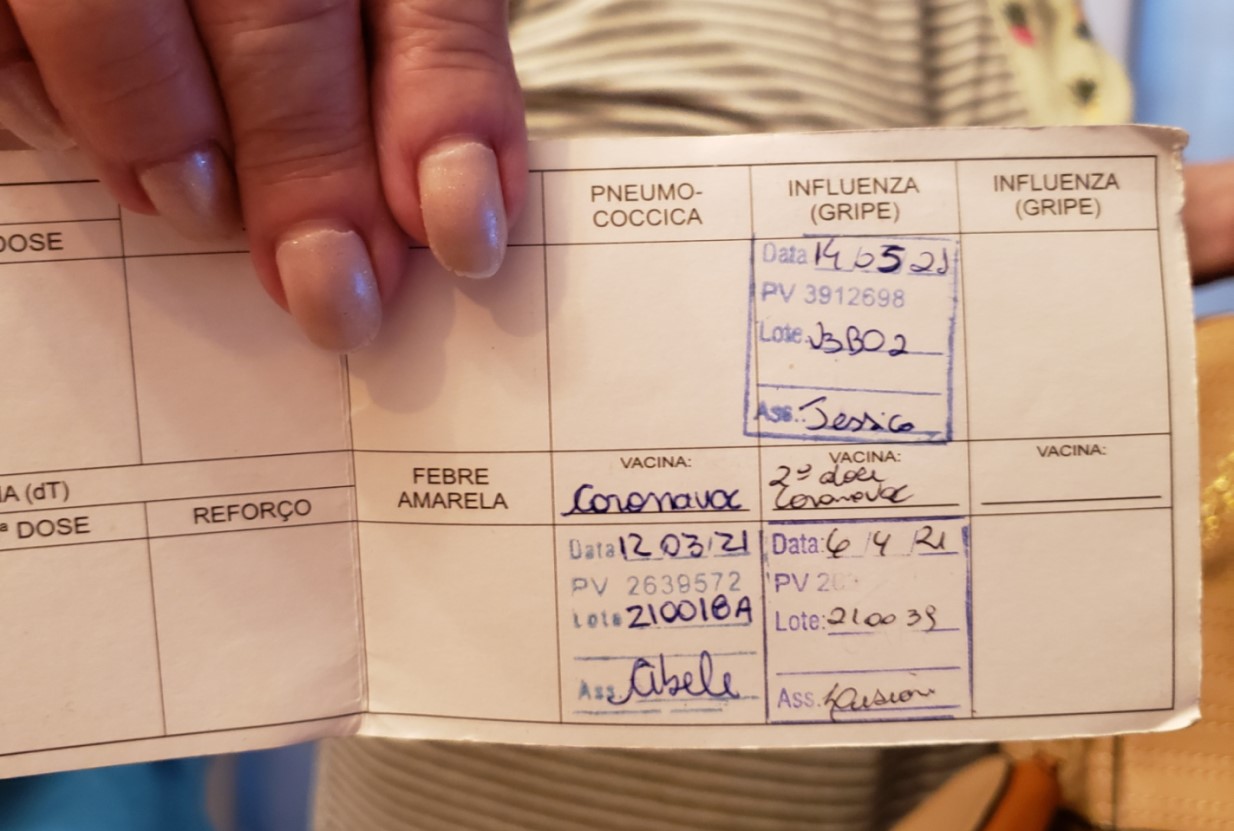 DOSE
PNEUMO-
COCCICA
INFLUENZA
(GRIPE)
INFLUENZA
(GRIPE)
Data 14 05 21
PV 3912698
Lote
Ass.: Jessica
IA (dT)
ª DOSE
REFORÇO
FEBRE
AMARELA
VACINA:
Coronavac
VACINA:
2ª dose
Coronavac
VACINA:
Data 12 03/21
PV 2639572
Lote 210018A
Ass.
Data: 6/4/21
PV
Lote: 210039
Ass.